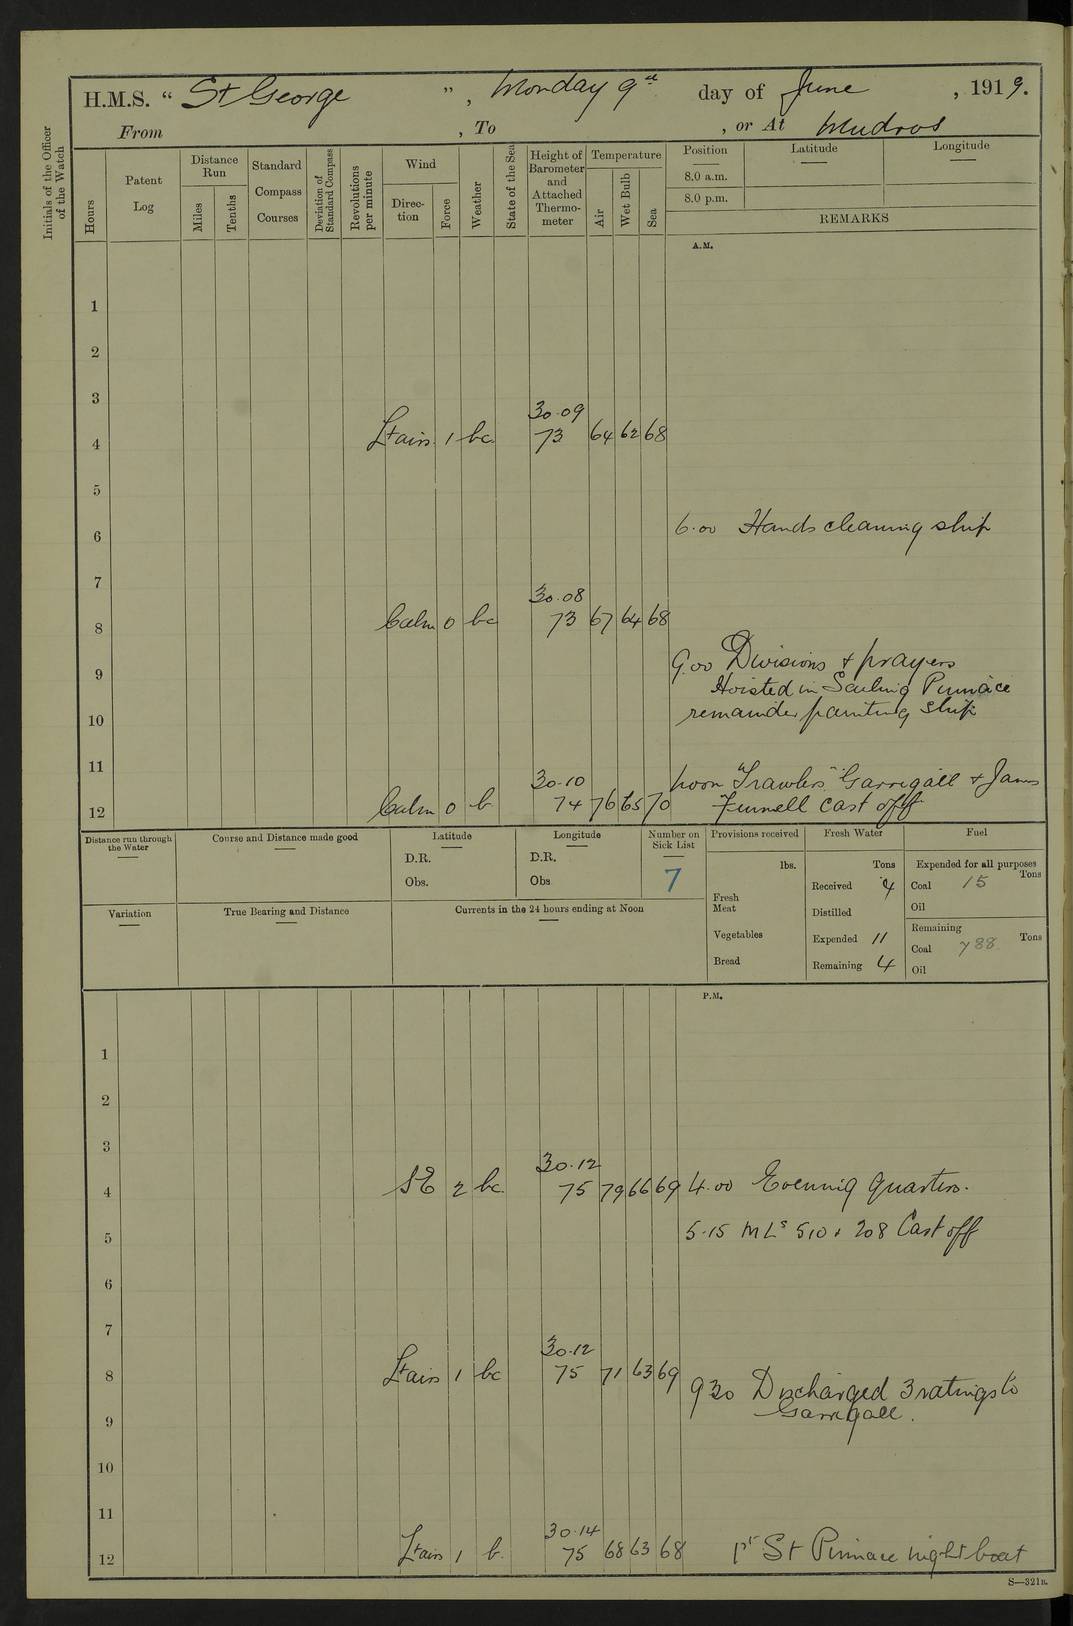 H.M.S. “ St George ” , Monday 9th day of June , 1919.
From , To , or At Mudros
Initials of the Officer of the Watch
Hours
Patent Log
Distance Run
Miles
Tenths
Standard Compass Courses
Deviation of Standard Compass
Revolutions per minute
Wind
Direction
Force
Weather
State of the Sea
Height of Barometer and Attached Thermometer
Temperature
Air
Wet Bulb
Sea
Position
Latitude
Longitude
8.0 a.m.
8.0 p.m.
REMARKS
A.M.
1
2
3
30.09
4 Lt airs 1 bc. 73 64 62 68
5
6 6.00 Hands cleaning ship
7
30.08
8 Calm 0 bc 73 67 64 68
9.00 Divisions & prayers
9 Hoisted in Sailing Pinnace
10 remainder painting ship
11
30.10 noon "Trawlers" Garrigall & James
12 Calm 0 b 74 76 65 70 Funnell cast off
Distance run through the Water
Course and Distance made good
Latitude
D.R.
Obs.
Longitude
D.R.
Obs
Number on Sick List
7
Provisions received
lbs.
Fresh Meat
Vegetables
Bread
Fresh Water
Tons
Received 4
Distilled
Expended 11
Remaining 4
Fuel
Expended for all purposes
Coal 15 Tons
Oil
Remaining
Coal 788 Tons
Oil
Variation
True Bearing and Distance
Currents in the 24 hours ending at Noon
P.M.
1
2
3
30.12
4 SE 2 bc. 75 79 66 69 4.00 Evening Quarters.
5 5.15 MLs 510 & 208 Cast off
6
7
30.12
8 Lt airs 1 bc 75 71 63 69
930 Discharged 3 ratings to
9 Garrigall.
10
11
30.14
12 Lt airs 1 b. 75 68 63 68 1st St Pinnace night boat
S—321B.